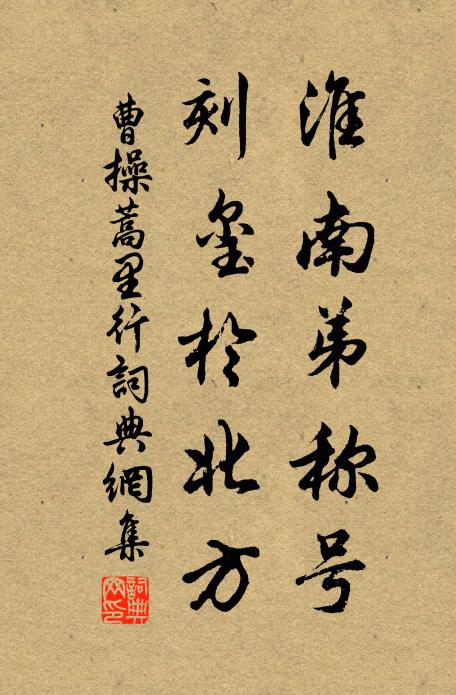 淮南弟称号
刻玺於北方
曹操蒿里行詞典網集
詞典网印